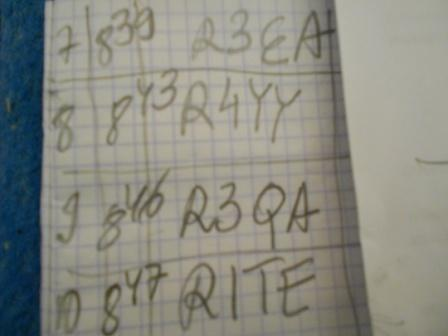 7 8³⁹ R3EA
8 8⁴³ R4YY
9 8⁴⁶ R3QA
10 8⁴⁷ R1TE